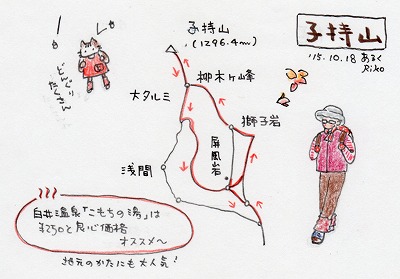 子持山
'15.10.18 あるく
Riko
子持山
(1296.4m)
柳木ヶ峰
大タルミ
獅子岩
屏風岩
浅間
どんぐり
たくさん
白井温泉「こもちの湯」は
¥250と良心価格
オススメ〜
地元のかたにも大人気!